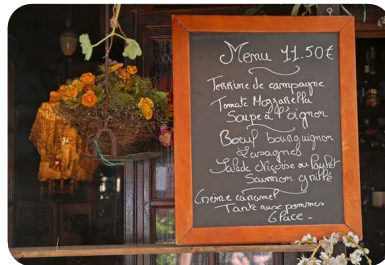 Menu 11.50€
Terrine de campagne
Tomate Mozzarella
Soupe à l'oignon
Bœuf bourguignon
Lasagnes
Salade Niçoise ou Poulet
Saumon grillé
Crème caramel
Tarte aux pommes
Glace -